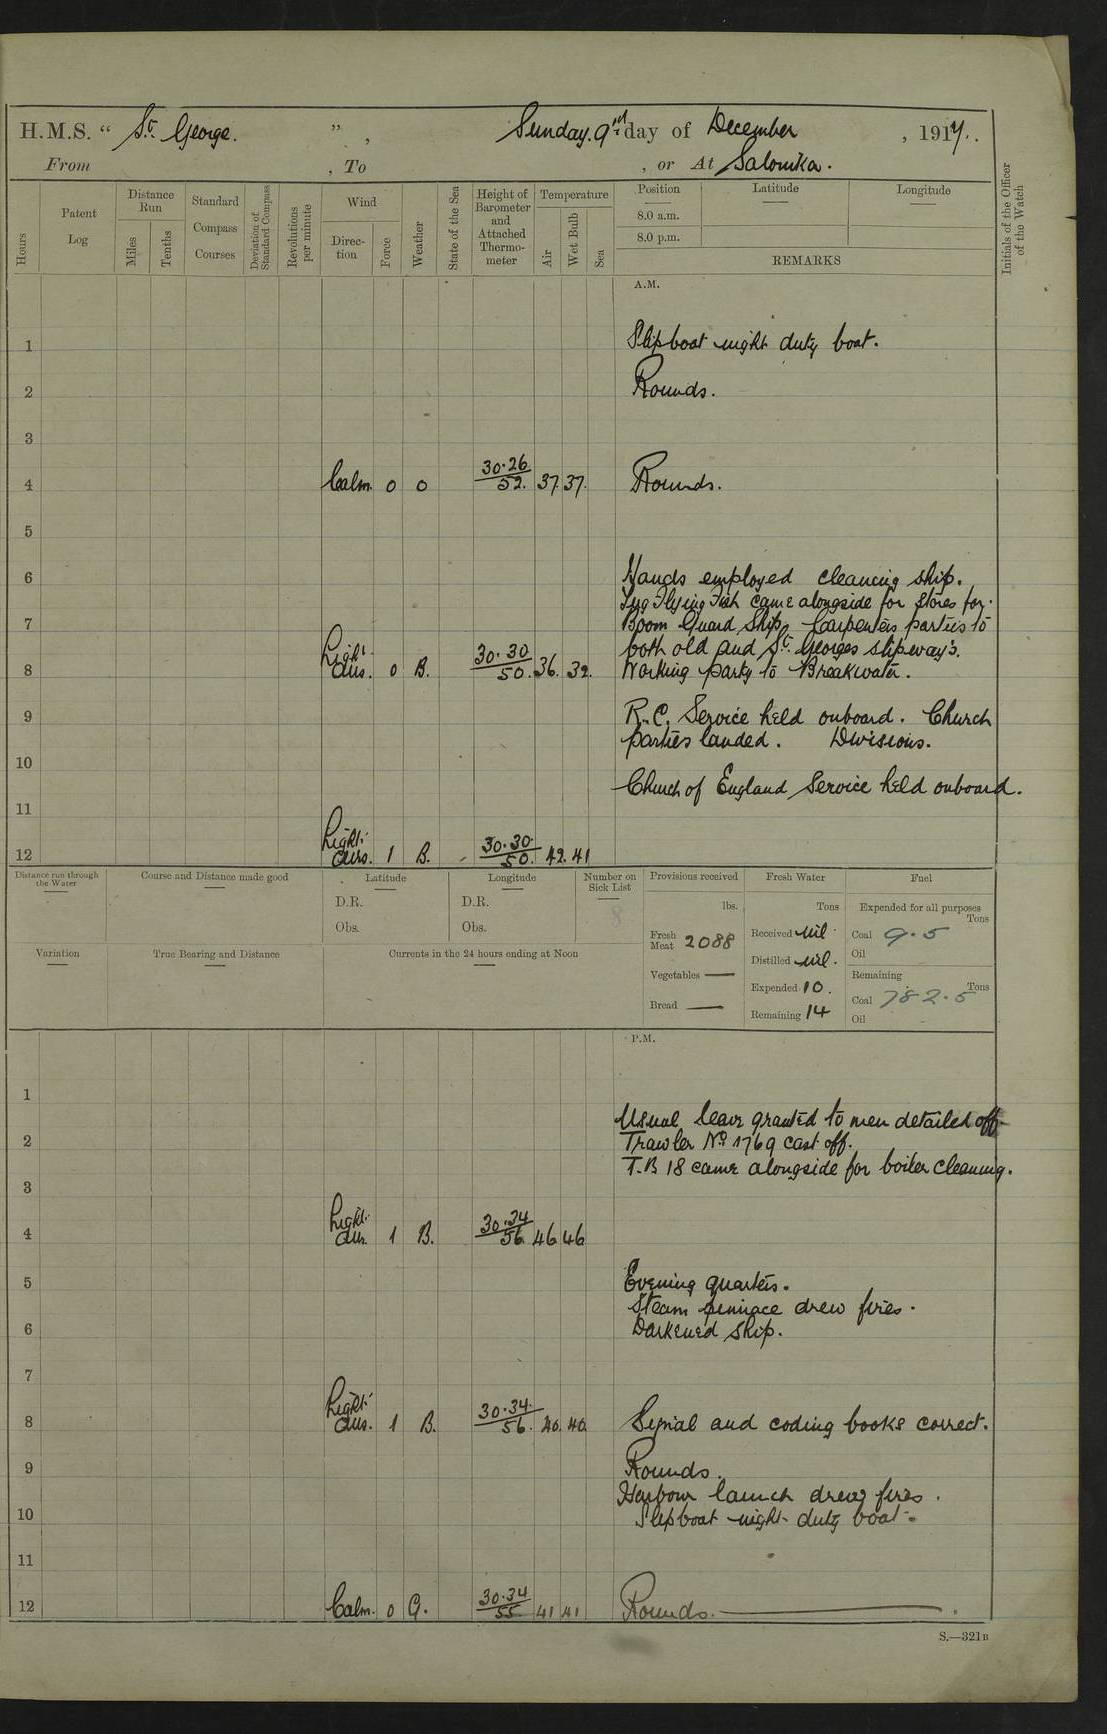 H.M.S. " St. George. " , Sunday. 9th day of December , 1917.
From , To , or At Salonika.
Hours
Patent Log
Distance Run
Miles
Tenths
Standard Compass Courses
Deviation of Standard Compass
Revolutions per minute
Wind
Direction
Force
Weather
State of the Sea
Height of Barometer and Attached Thermometer
Temperature
Air
Wet Bulb
Sea
Position Latitude Longitude
8.0 a.m.
8.0 p.m.
REMARKS
Initials of the Officer of the Watch
A.M.
1 Slipboat night duty boat.
2 Rounds.
3
4 Calm. 0 0 30.26/52. 37. 37. Rounds.
5
6 Hands employed cleaning ship.
Tug Flying Fish came alongside for stores for
7 Boom Guard Ship. Carpenters parties to
both old and St. Georges slipway's.
8 Light Airs. 0 B. 30.30/50. 36. 32. Working party to Breakwater.
9 R.C. Service held onboard. Church
parties landed. Divisions.
10
Church of England Service held onboard.
11
12 Light Airs. 1 B. 30.30/50. 42. 41
Distance run through the Water
Course and Distance made good
Latitude
D.R.
Obs.
Longitude
D.R.
Obs.
Number on Sick List
8
Provisions received
lbs.
Fresh Meat 2088
Vegetables —
Bread —
Fresh Water
Tons
Received nil.
Distilled nil.
Expended 10.
Remaining 14
Fuel
Expended for all purposes
Tons
Coal 9.5
Oil
Remaining
Tons
Coal 782.5
Oil
Variation
True Bearing and Distance
Currents in the 24 hours ending at Noon
P.M.
1
Usual leave granted to men detailed off.
2 Trawler No. 1769 cast off.
T.B 18 came alongside for boiler cleaning.
3
4 Light Airs. 1 B. 30.34/56 46 46
5 Evening quarters.
Steam pinnace drew fires.
6 Darkened ship.
7
8 Light Airs. 1 B. 30.34/56. 40. 40. Signal and coding books correct.
9 Rounds.
Harbour launch drew fires.
10 Slipboat night duty boat.
11
12 Calm. 0 G. 30.34/55 41 41 Rounds.
S.—321B